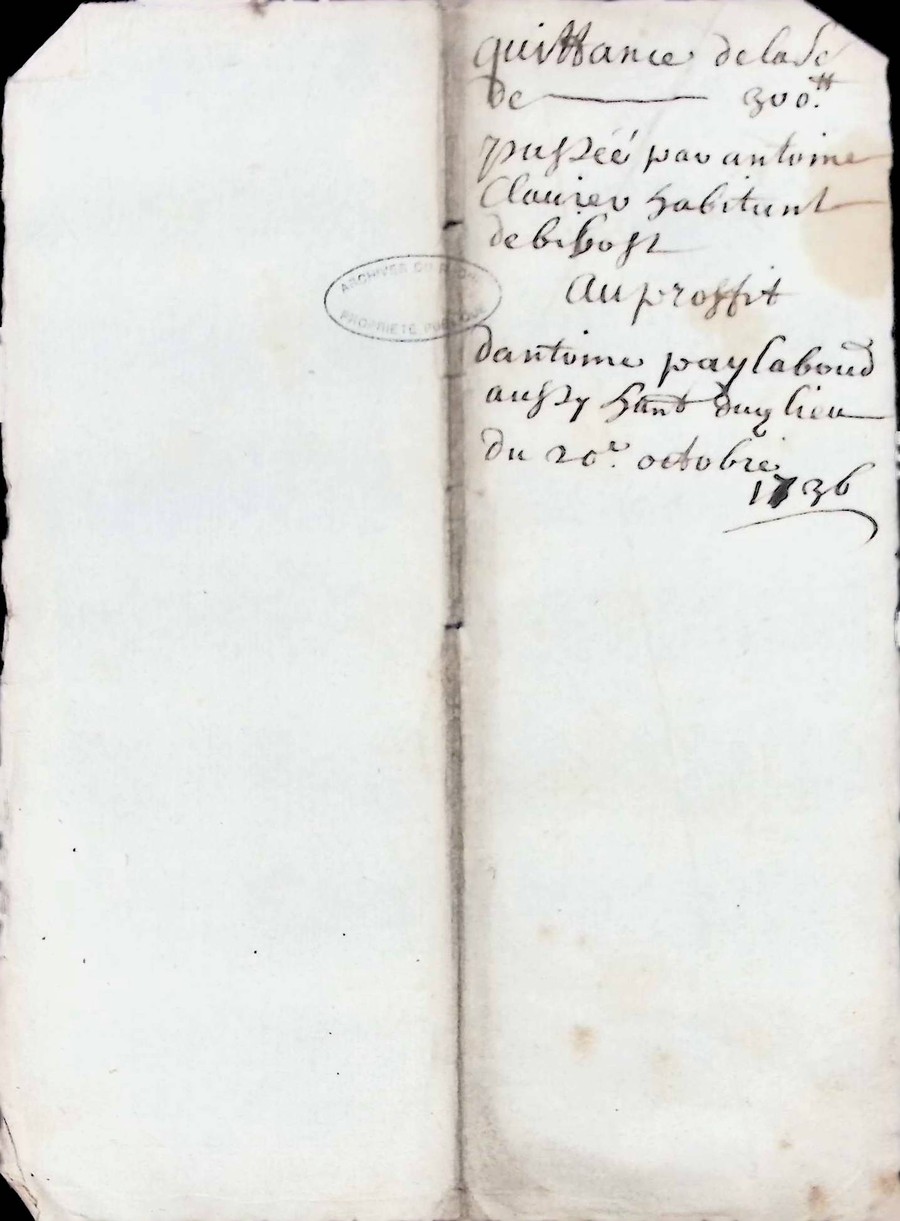 quittance de la So
de ——— 300.tt
passéé par antoine
Clavier habitant
de bibost
Au proffit
dantoine paylaboud
aussy hant duq lieu
du 20e. octobre
1736
ARCHIVES DU RHÔNE
PROPRIÉTÉ PUBLIQUE